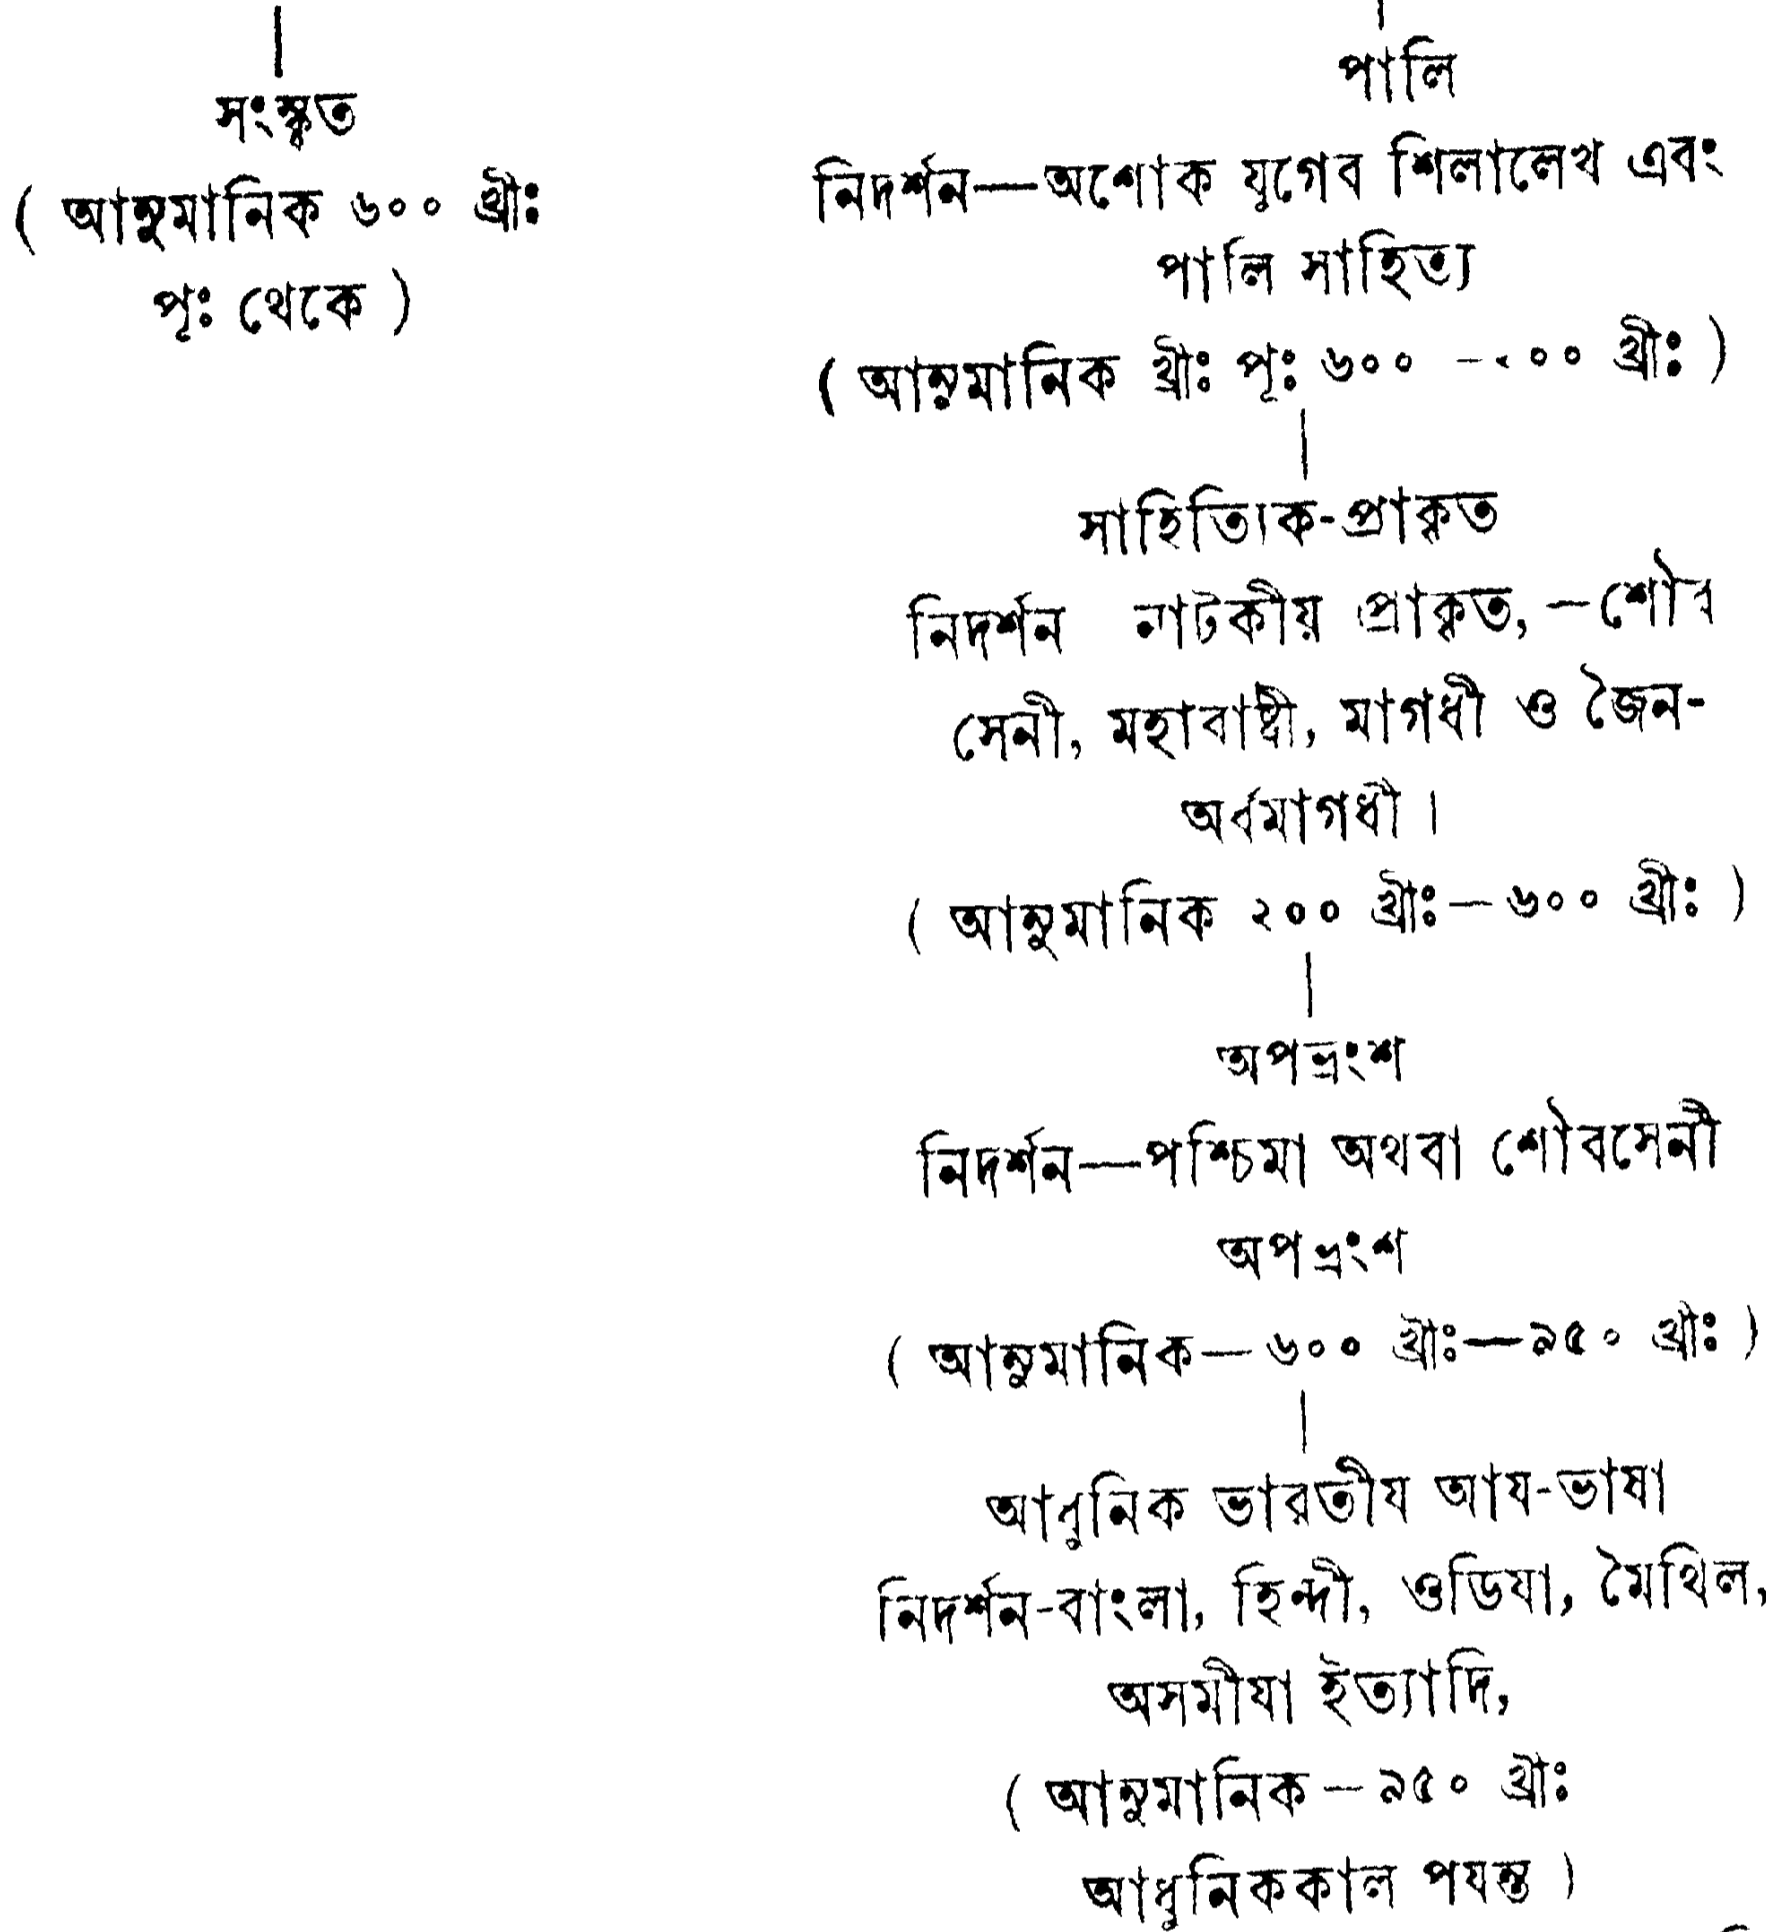 সংস্কৃত
( আনুমানিক ৬০০ খ্রীঃ
পূঃ থেকে )
পালি
নিদর্শন—অশোক যুগেব শিলালেখ এবং
পালি সাহিত্য
( আনুমানিক খ্রীঃ পূঃ ৬০০ – ০০ খ্রীঃ )
সাহিত্যিক-প্রাকৃত
নিদর্শন নাটকীয় প্রাকৃত, —শৌব
সেনী, মহাবাষ্ট্রী, মাগধী ও জৈন-
অর্ধমাগধী ।
( আনুমানিক ২০০ খ্রীঃ—৬০০ খ্রীঃ )
অপভ্রংশ
নিদর্শন—পশ্চিমা অথবা শৌবসেনী
অপভ্রংশ
( আনুমানিক—৬০০ খ্রীঃ—৯৫০ খ্রীঃ )
আধুনিক ভারতীয আয-ভাষা
নিদর্শন-বাংলা, হিন্দী, ওডিযা, মৈথিল,
অসমীযা ইত্যাদি,
( আনুমানিক – ৯৫০ খ্রীঃ
আধুনিককাল পযন্ত )